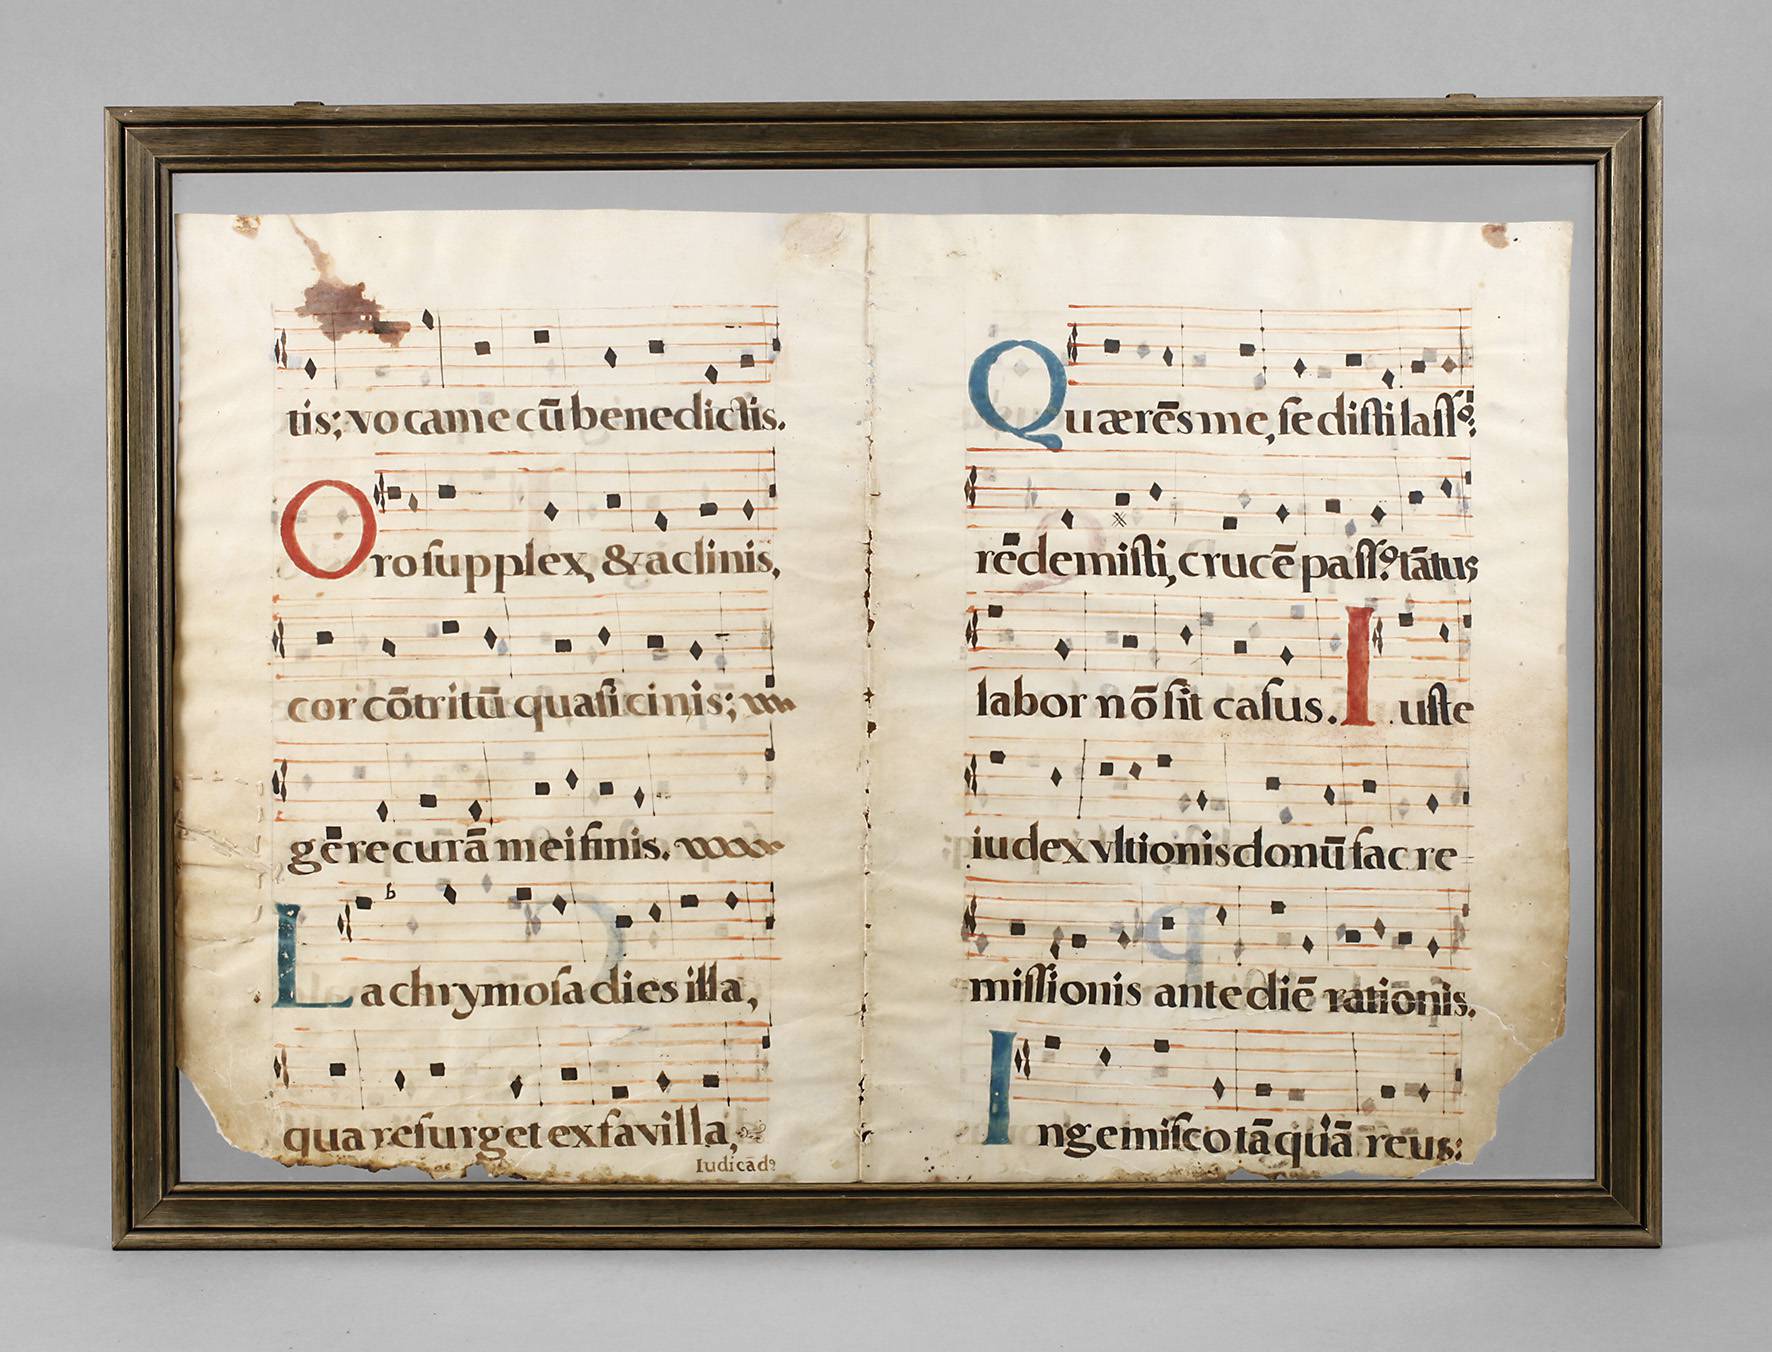 tis; voca me cū benedictis.
Oro supplex, & aclinis,
cor cōtritū quasi cinis;
gēre curā mei finis.
Lachrymosa dies illa,
qua resurget ex favilla,
Iudicādꝰ
Quærēs me, sedisti lassꝰ:
rēdemisti, crucē passꝰ: tātus
labor nō sit casus. Iuste
iudex vltionis donū fac re-
missionis ante diē rationis.
Ingemisco tāquā reus: